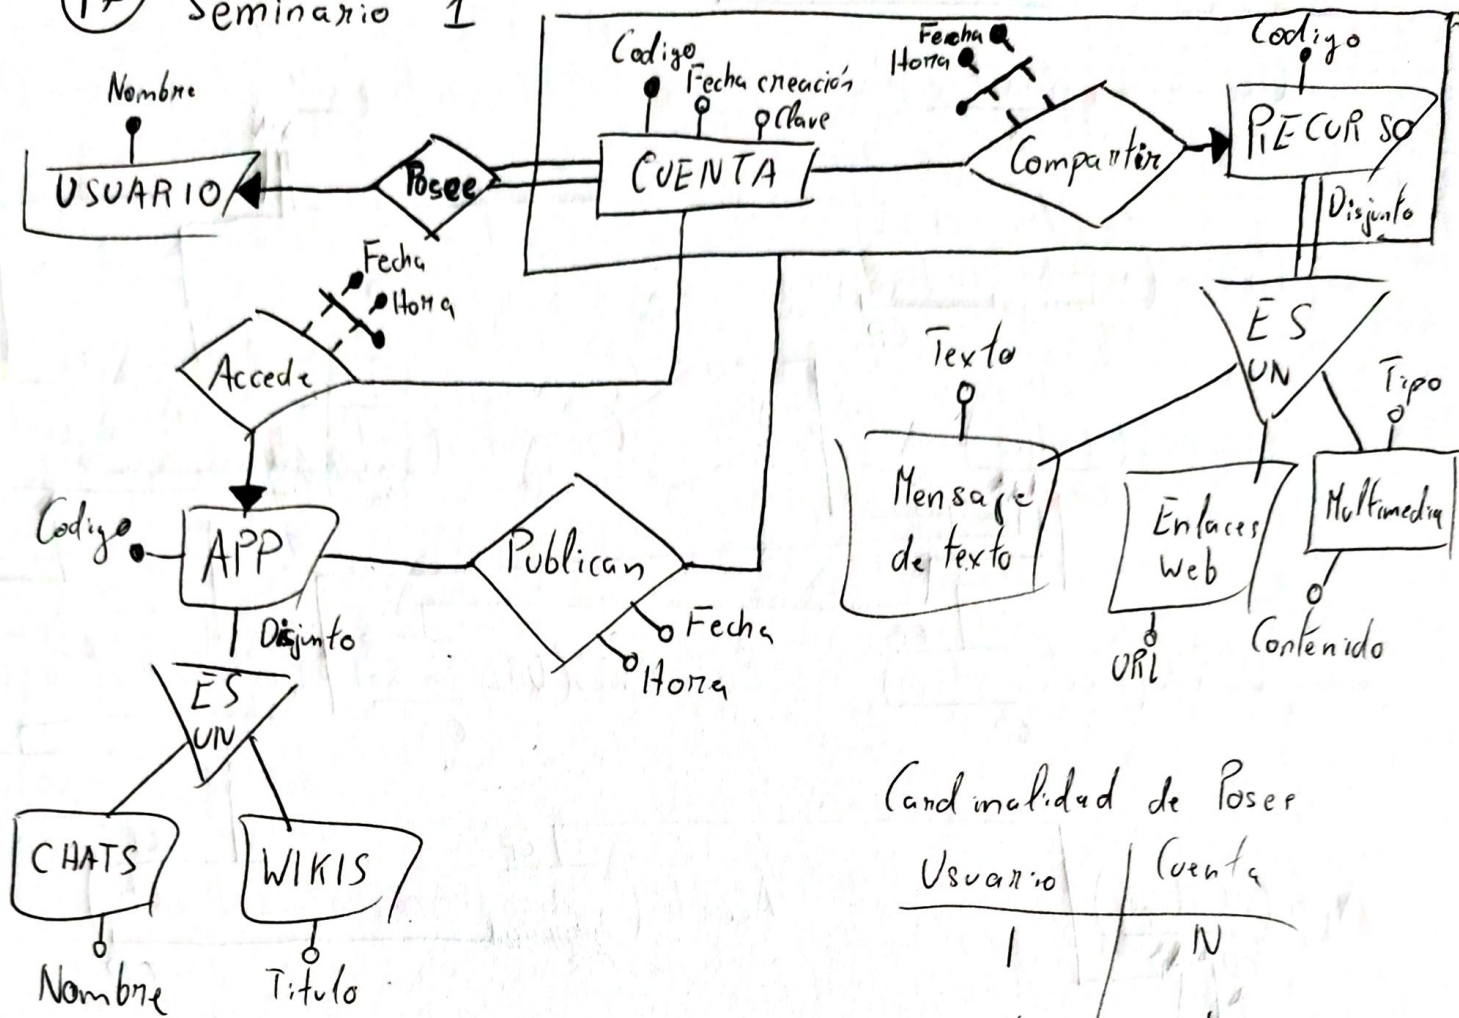 17 Seminario 1
Nombre
USUARIO
Posee
Codigo
Fecha creación
Clave
CUENTA
Fecha
Hora
Compartir
Codigo
RECURSO
Disjunto
Fecha
Hora
Accede
ES
UN
Texto
Mensaje
de texto
Enlaces
web
URL
Tipo
Multimedia
Contenido
Codigo
APP
Publican
Fecha
Hora
Disjunto
ES
UN
CHATS
Nombre
WIKIS
Titulo
Cardinalidad de Posee
Usuario Cuenta
1 N